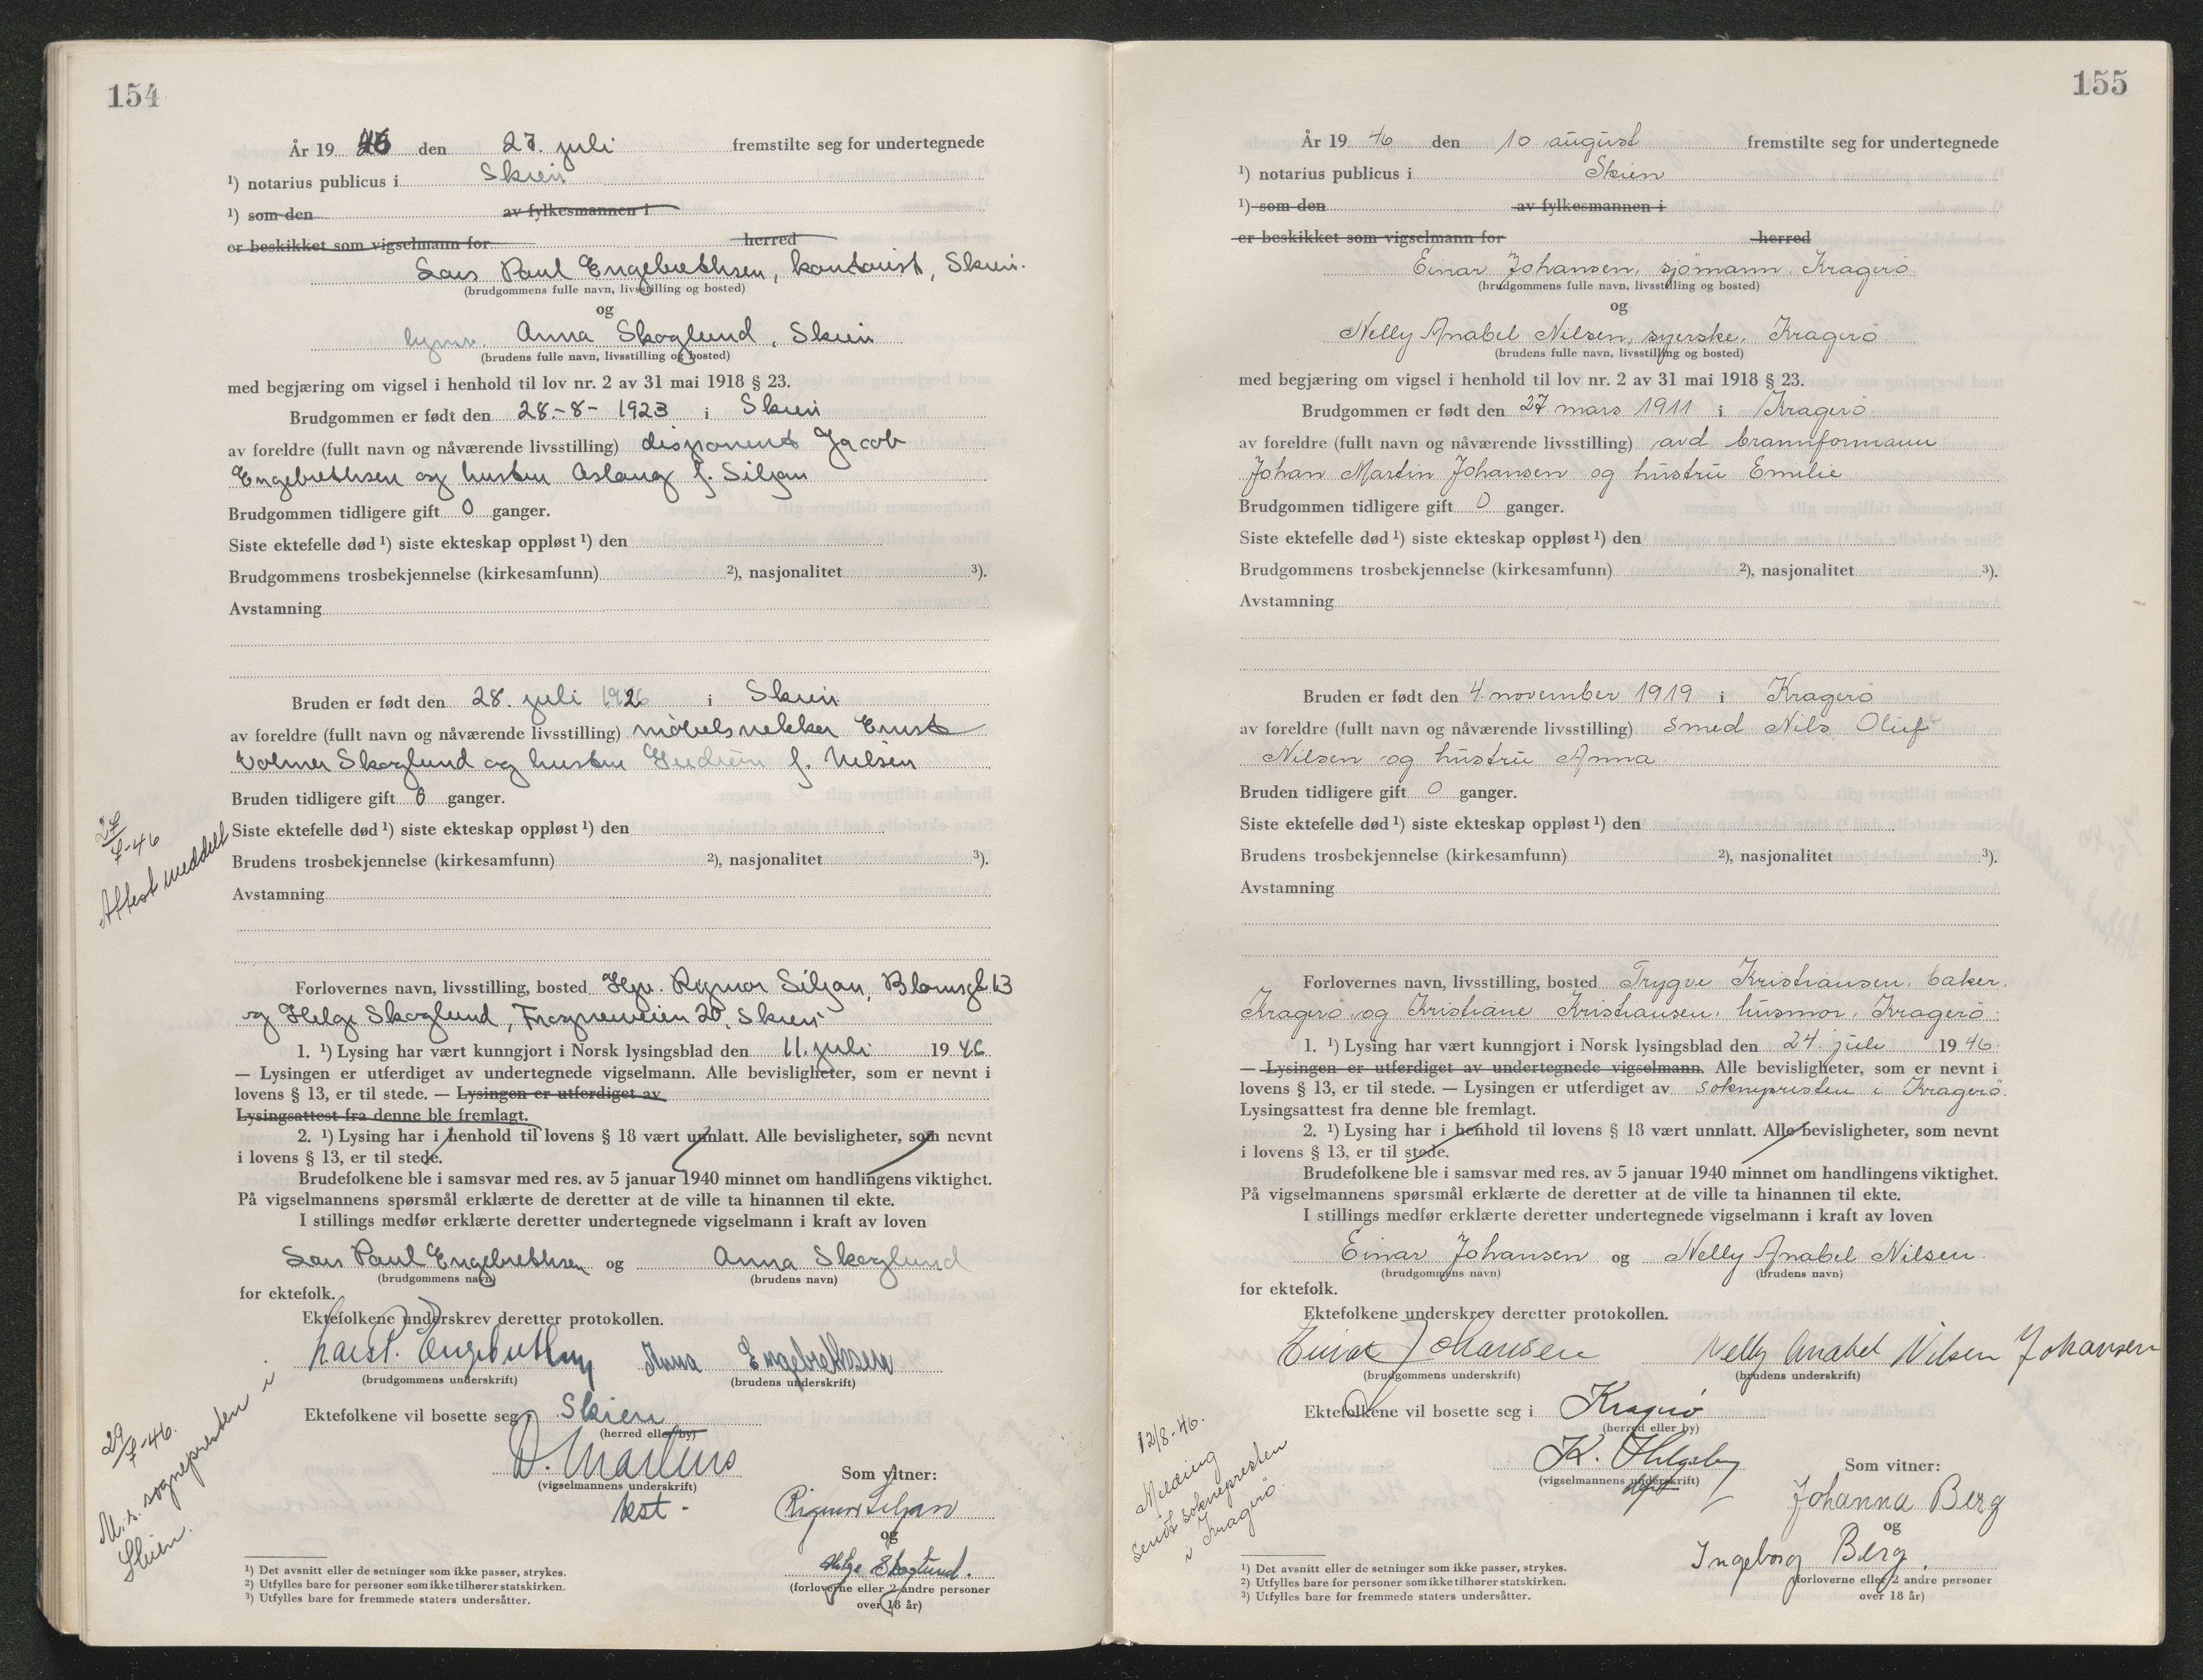 154
År 19 46 den 27. juli fremstilte seg for undertegnede
¹) notarius publicus i Skien
¹) som den av fylkesmannen i
er beskikket som vigselmann for herred
Lars Paul Engebrethsen, kontorist, Skien.
(brudgommens fulle navn, livsstilling og bosted)
og
Anna Skoglund, Skien
(brudens fulle navn, livsstilling og bosted)
med begjæring om vigsel i henhold til lov nr. 2 av 31 mai 1918 § 23.
Brudgommen er født den 28.-8- 1923 i Skien
av foreldre (fullt navn og nåværende livsstilling) disponent Jacob
Engebrethsen og hustru Aslaug f. Siljan
Brudgommen tidligere gift 0 ganger.
Siste ektefelle død ¹) siste ekteskap oppløst ¹) den
Brudgommens trosbekjennelse (kirkesamfunn) ²), nasjonalitet ³).
Avstamning
Bruden er født den 28. juli 1926 i Skien
av foreldre (fullt navn og nåværende livsstilling) møbelsnekker Ernst
Volmer Skoglund og hustru Gudrun f. Nilsen
Bruden tidligere gift 0 ganger.
27/7-46
Attest meddelt
Siste ektefelle død ¹) siste ekteskap oppløst ¹) den
Brudens trosbekjennelse (kirkesamfunn) ²), nasjonalitet ³).
Avstamning
Forlovernes navn, livsstilling, bosted Hgv. Rigmor Siljan, Blomsgt. 13
og Helge Skoglund, Frogneveien 20, Skien
1. ¹) Lysing har vært kunngjort i Norsk lysingsblad den 11. juli 19 46
— Lysingen er utferdiget av undertegnede vigselmann. Alle bevisligheter, som er nevnt i
lovens § 13, er til stede. — Lysingen er utferdiget av
Lysingsattest fra denne ble fremlagt.
2. ¹) Lysing har i henhold til lovens § 18 vært unnlatt. Alle bevisligheter, som nevnt
i lovens § 13, er til stede.
Brudefolkene ble i samsvar med res. av 5 januar 1940 minnet om handlingens viktighet.
På vigselmannens spørsmål erklærte de deretter at de ville ta hinannen til ekte.
I stillings medfør erklærte deretter undertegnede vigselmann i kraft av loven
Lars Paul Engebrethsen og Anna Skoglund
(brudgommens navn) (brudens navn)
for ektefolk.
Ektefolkene underskrev deretter protokollen.
Lars P. Engebrethsen Anna Engebrethsen
(brudgommens underskrift) (brudens underskrift)
Ektefolkene vil bosette seg i Skien
(herred eller by)
29/7-46.
M. s. sognepresten i
Skien.
(vigselmannens underskrift)
kst -
Som vitner:
Rigmor Siljan
og
Helge Skoglund.
(forloverne eller 2 andre personer
over 18 år)
¹) Det avsnitt eller de setninger som ikke passer, strykes.
²) Utfylles bare for personer som ikke tilhører statskirken.
³) Utfylles bare for fremmede staters undersåtter.
155
År 19 46 den 10 august fremstilte seg for undertegnede
¹) notarius publicus i Skien
¹) som den av fylkesmannen i
er beskikket som vigselmann for herred
Einar Johansen, sjömann, Kragerö
(brudgommens fulle navn, livsstilling og bosted)
og
Nelly Anabel Nilsen, syerske, Kragerö
(brudens fulle navn, livsstilling og bosted)
med begjæring om vigsel i henhold til lov nr. 2 av 31 mai 1918 § 23.
Brudgommen er født den 27. mars 1911 i Kragerö
av foreldre (fullt navn og nåværende livsstilling) avd. brannformann
Johan Martin Johansen og hustru Emilie
Brudgommen tidligere gift 0 ganger.
Siste ektefelle død ¹) siste ekteskap oppløst ¹) den
Brudgommens trosbekjennelse (kirkesamfunn) ²), nasjonalitet ³).
Avstamning
Bruden er født den 4. november 1919 i Kragerö
av foreldre (fullt navn og nåværende livsstilling) smed Nils Oluf
Nilsen og hustru Anna
Bruden tidligere gift 0 ganger.
Siste ektefelle død ¹) siste ekteskap oppløst ¹) den
Brudens trosbekjennelse (kirkesamfunn) ²), nasjonalitet ³).
Avstamning
Forlovernes navn, livsstilling, bosted Trygve Kristiansen, baker,
Kragerö og Kristiane Kristiansen, husmor, Kragerö
1. ¹) Lysing har vært kunngjort i Norsk lysingsblad den 24. juli 19 46.
— Lysingen er utferdiget av undertegnede vigselmann. Alle bevisligheter, som er nevnt i
lovens § 13, er til stede. — Lysingen er utferdiget av soknepresten i Kragerö.
Lysingsattest fra denne ble fremlagt.
2. ¹) Lysing har i henhold til lovens § 18 vært unnlatt. Alle bevisligheter, som nevnt
i lovens § 13, er til stede.
Brudefolkene ble i samsvar med res. av 5 januar 1940 minnet om handlingens viktighet.
På vigselmannens spørsmål erklærte de deretter at de ville ta hinannen til ekte.
I stillings medfør erklærte deretter undertegnede vigselmann i kraft av loven
Einar Johansen og Nelly Anabel Nilsen
(brudgommens navn) (brudens navn)
for ektefolk.
Ektefolkene underskrev deretter protokollen.
Einar Johansen Nelly Anabel Nilsen Johansen
(brudgommens underskrift) (brudens underskrift)
Ektefolkene vil bosette seg i Kragerø
(herred eller by)
12/8-46.
Melding
sendt soknepresten
i Kragerö.
K. Helgeby
(vigselmannens underskrift)
Som vitner:
Johanna Berg
og
Ingeborg Berg.
(forloverne eller 2 andre personer
over 18 år)
¹) Det avsnitt eller de setninger som ikke passer, strykes.
²) Utfylles bare for personer som ikke tilhører statskirken.
³) Utfylles bare for fremmede staters undersåtter.